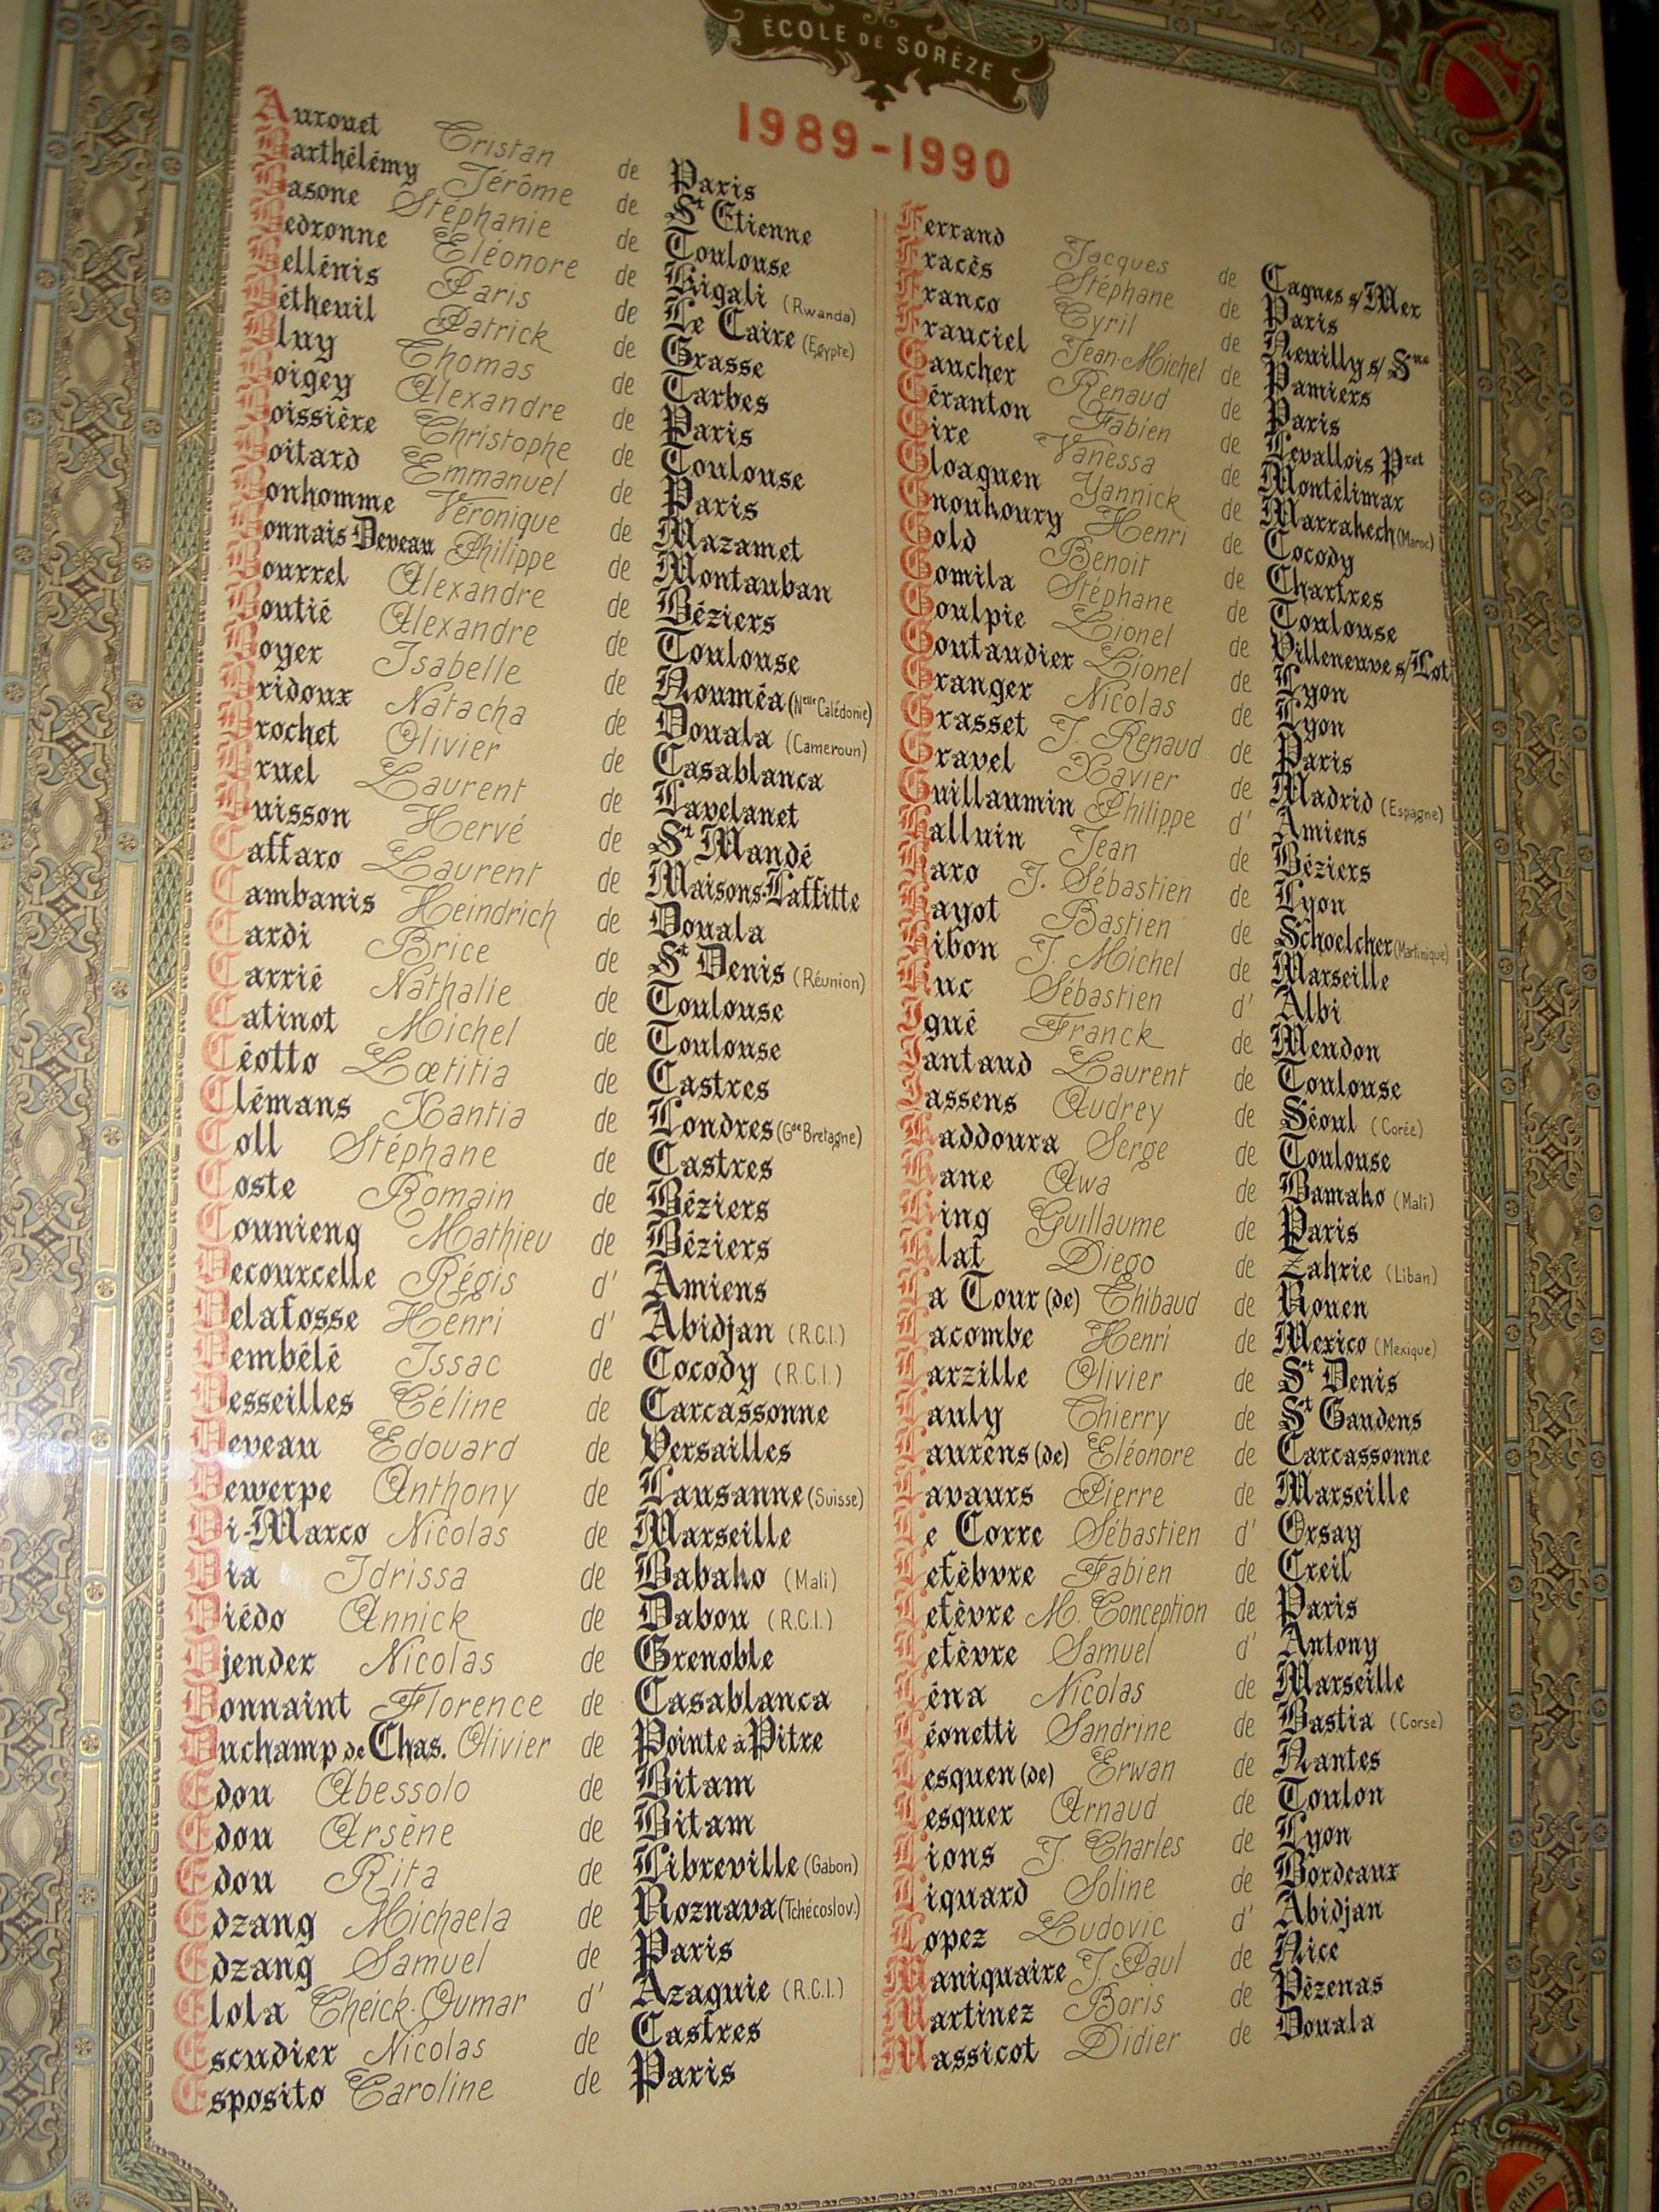 ÉCOLE DE SORÈZE
1989-1990
Aurouet Tristan de Paris
Barthélémy Jérôme de St Etienne
Basone Stéphanie de Toulouse
Bedronne Eléonore de Kigali (Rwanda)
Bellénis Paris de Le Caire (Egypte)
Bétheuil Patrick de Grasse
Bluy Thomas de Tarbes
Boigey Alexandre de Paris
Boissière Christophe de Toulouse
Boitard Emmanuel de Paris
Bonhomme Véronique de Mazamet
Bonnais Deveau Philippe de Montauban
Bourrel Alexandre de Béziers
Boutié Alexandre de Toulouse
Boyer Isabelle de Nouméa (Nelle Calédonie)
Bridoux Natacha de Douala (Cameroun)
Brochet Olivier de Casablanca
Bruel Laurent de Lavelanet
Buisson Hervé de St Mandé
Caffaro Laurent de Maisons-Laffitte
Cambanis Heindrich de Douala
Cardi Brice de St Denis (Réunion)
Carrié Nathalie de Toulouse
Catinot Michel de Toulouse
Céotto Lœtitia de Castres
Clémans Xantia de Londres (Gde Bretagne)
Coll Stéphane de Castres
Coste Romain de Béziers
Counieng Mathieu de Béziers
Decourcelle Régis d' Amiens
Delafosse Henri d' Abidjan (R.C.I.)
Dembélé Issac de Cocody (R.C.I.)
Desseilles Céline de Carcassonne
Deveau Edouard de Versailles
Dewerpe Anthony de Lausanne (Suisse)
Di-Marco Nicolas de Marseille
Dia Idrissa de Babako (Mali)
Diédo Annick de Dabou (R.C.I.)
Djender Nicolas de Grenoble
Donnaint Florence de Casablanca
Duchamp de Chas. Olivier de Pointe à Pitre
Edou Abessolo de Bitam
Edou Arsène de Bitam
Edou Rita de Libreville (Gabon)
Edzang Michaela de Roznava (Tchécoslov.)
Edzang Samuel de Paris
Elola Cheick-Oumar d' Azaguie (R.C.I.)
Escudier Nicolas de Castres
Esposito Caroline de Paris
Ferrand Jacques de Cagnes s/Mer
Fracès Stéphane de Paris
Franco Cyril de Neuilly s/ Sne
Frauciel Jean-Michel de Pamiers
Gaucher Renaud de Paris
Géranton Fabien de Levallois Pret
Gire Vanessa de Montélimar
Gloaguen Yannick de Marrakech (Maroc)
Gnouhoury Henri de Cocody
Gold Benoit de Chartres
Gomila Stéphane de Toulouse
Goulpie Lionel de Villeneuve s/Lot
Goutaudier Lionel de Lyon
Granger Nicolas de Lyon
Grasset J. Renaud de Paris
Gravel Xavier de Madrid (Espagne)
Guillaumin Philippe d' Amiens
Halluin Jean de Béziers
Haro J. Sébastien de Lyon
Hayot Bastien de Schoelcher (Martinique)
Hibon J. Michel de Marseille
Huc Sébastien d' Albi
Igué Franck de Meudon
Jantaud Laurent de Toulouse
Jassens Audrey de Séoul (Corée)
Kaddoura Serge de Toulouse
Kane Awa de Bamako (Mali)
King Guillaume de Paris
Klat Diego de Zahrie (Liban)
La Tour (de) Thibaud de Rouen
Lacombe Henri de Mexico (Mexique)
Larzille Olivier de St Denis
Lauly Thierry de St Gaudens
Laurens (de) Eléonore de Carcassonne
Lavaurs Pierre de Marseille
Le Corre Sébastien d' Orsay
Lefèbvre Fabien de Creil
Lefèvre M. Conception de Paris
Lefèvre Samuel d' Antony
Léna Nicolas de Marseille
Léonetti Sandrine de Bastia (Corse)
Lesquen (de) Erwan de Nantes
Lesquer Arnaud de Toulon
Lions J. Charles de Lyon
Liquard Soline de Bordeaux
Lopez Ludovic d' Abidjan
Maniquaire J. Paul de Nice
Martinez Boris de Pézenas
Massicot Didier de Douala